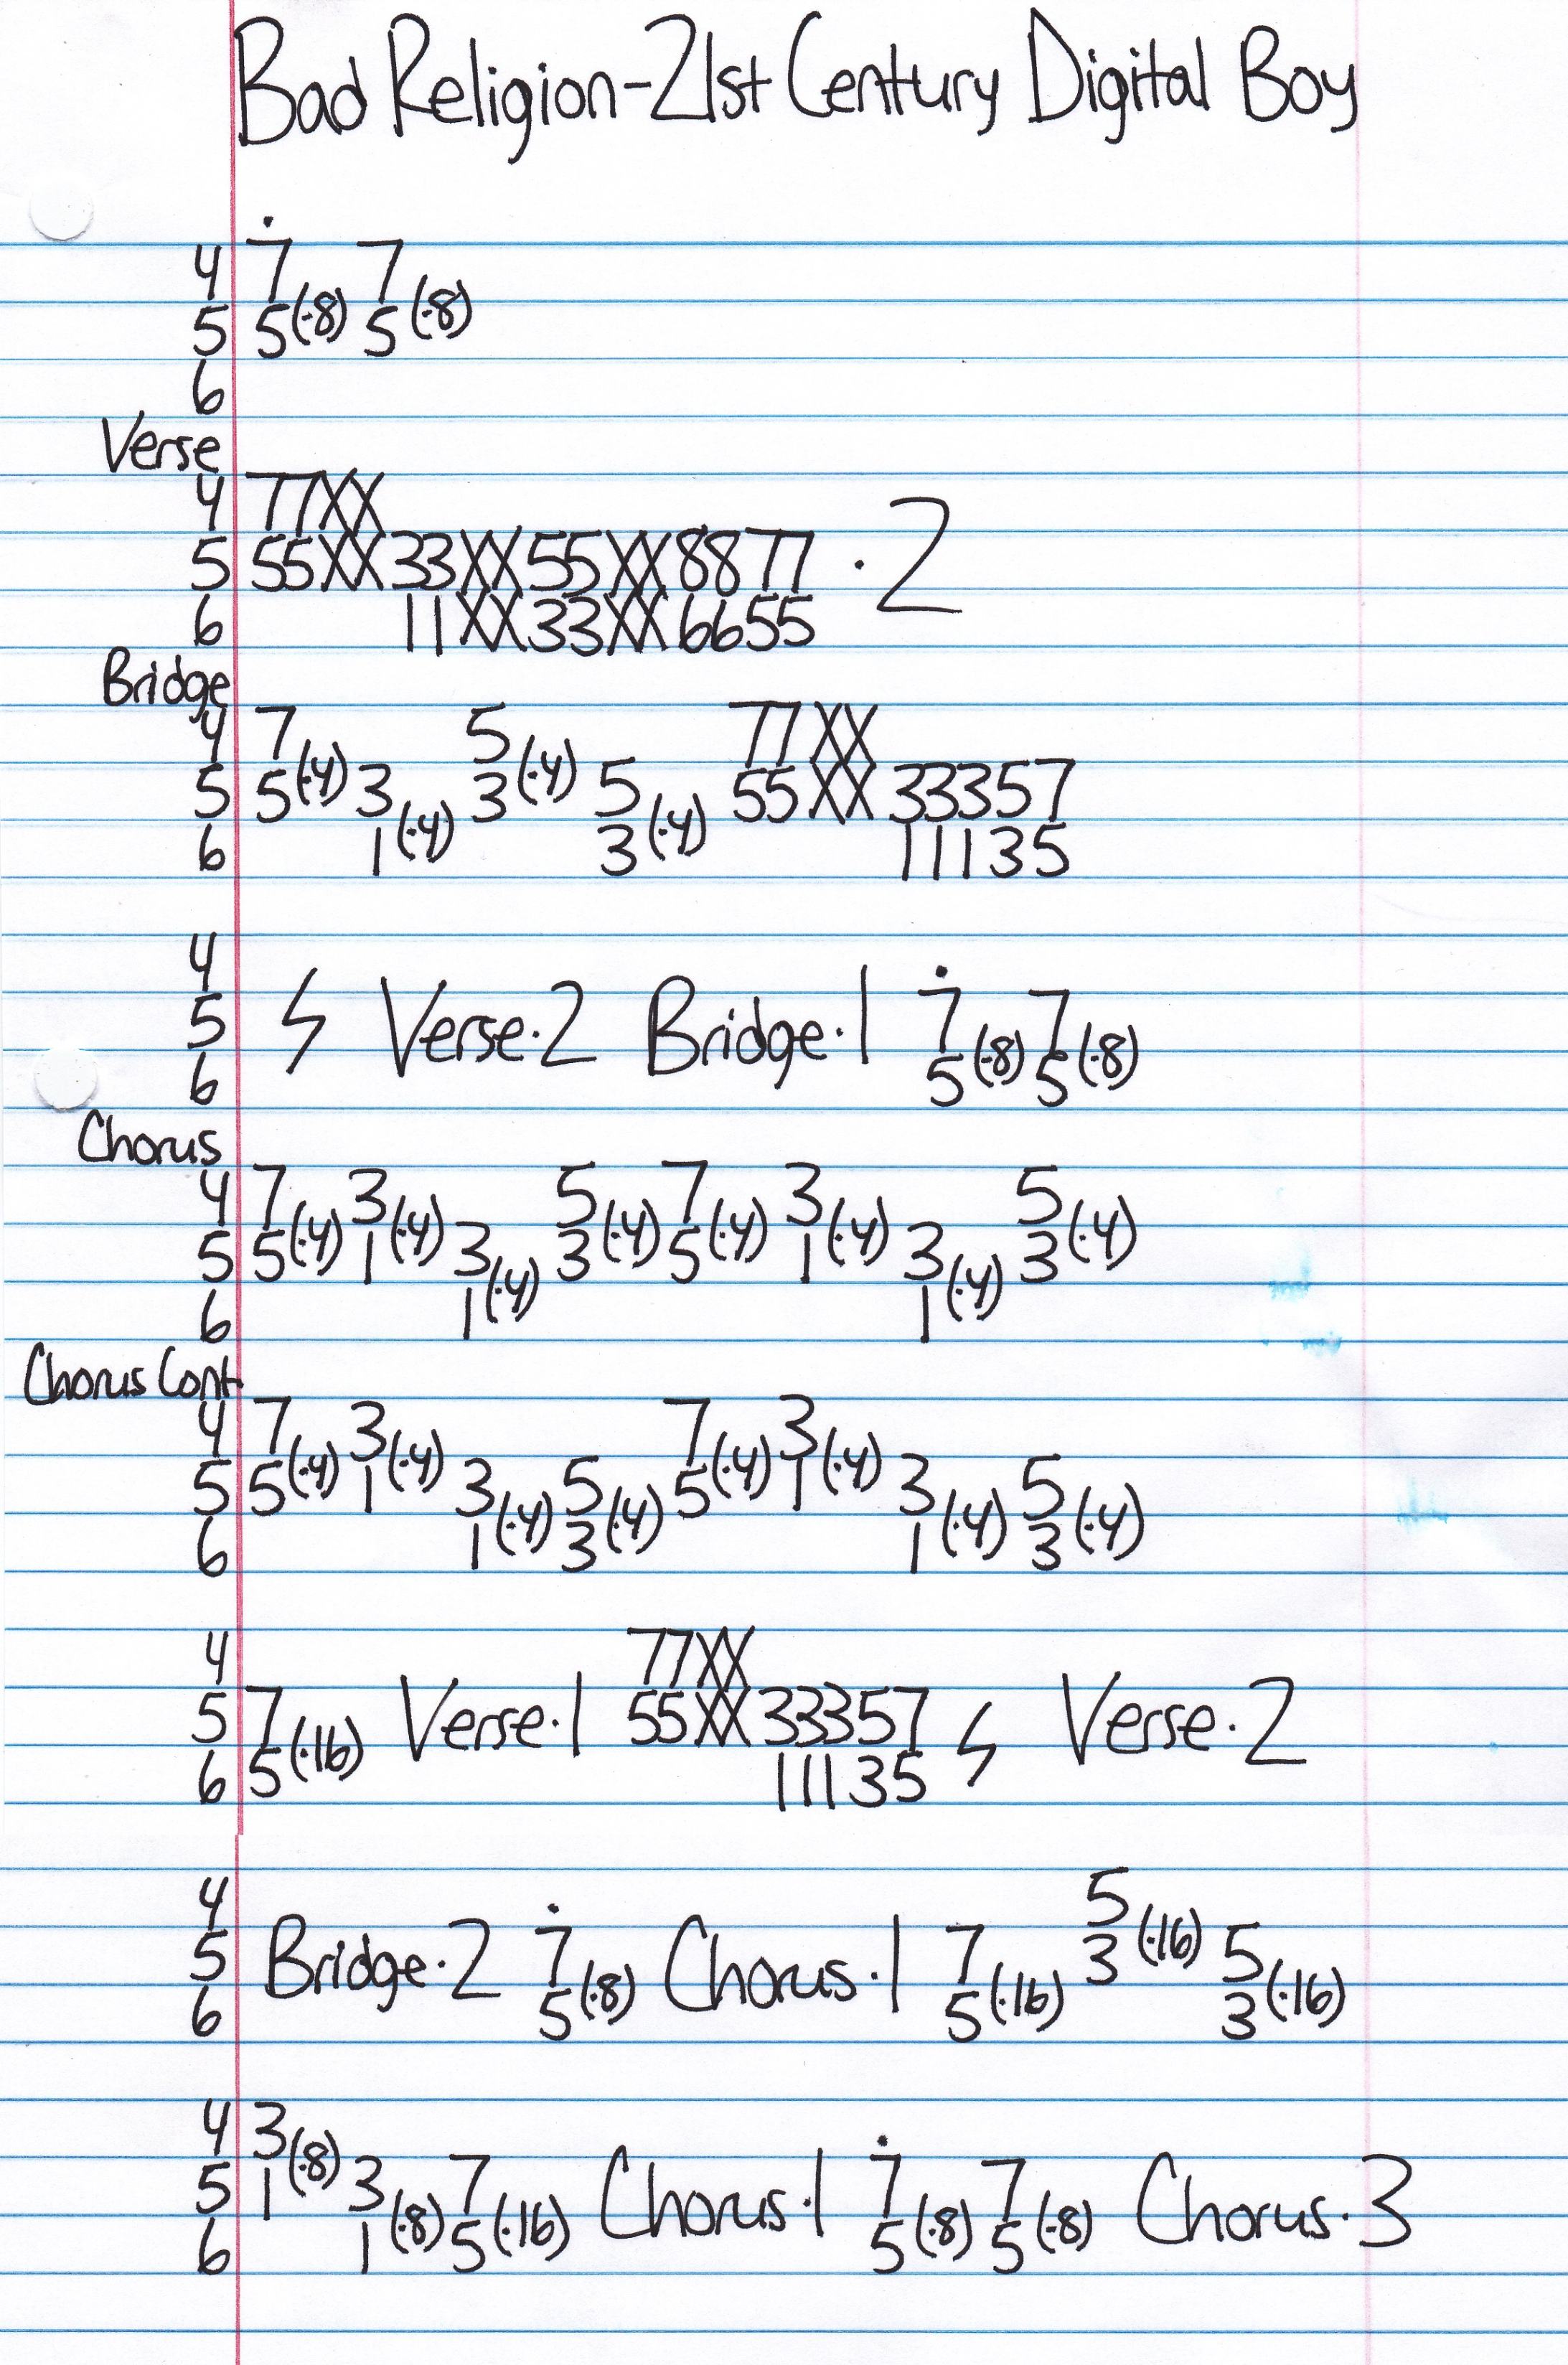 Bad Religion-21st Century Digital Boy
4 7̇ 7
5 5(·8) 5(·8)
6
Verse
4 77XX
5 55XX33XX55XX8877 ·2
6 11XX33XX6655
Bridge
4 7 5 77XX
5 5(·4) 3 3(·4) 5 55XX33357
6 1(·4) 3(·4) 11135
4
5 ϟ Verse·2 Bridge·1 7̇ 7
6 5(·8) 5(·8)
Chorus
4 7 3 5 7 3 5
5 5(·4) 1(·4) 3 3(·4) 5(·4) 1(·4) 3 3(·4)
6 1(·4) 1(·4)
Chorus Cont.
4 7 3 7 3
5 5(·4) 1(·4) 3 5 5(·4) 1(·4) 3 5
6 1(·4) 3(·4) 1(·4) 3(·4)
4 77XX
5 7 Verse·1 55XX33357 ϟ Verse·2
6 5(·16) 11135
4 5
5 Bridge·2 7̇ Chorus·1 7 3(·16) 5
6 5(·8) 5(·16) 3(·16)
4 3
5 1(·8) 3 7 Chorus·1 7̇ 7 Chorus·3
6 1(·8) 5(·16) 5(·8) 5(·8)